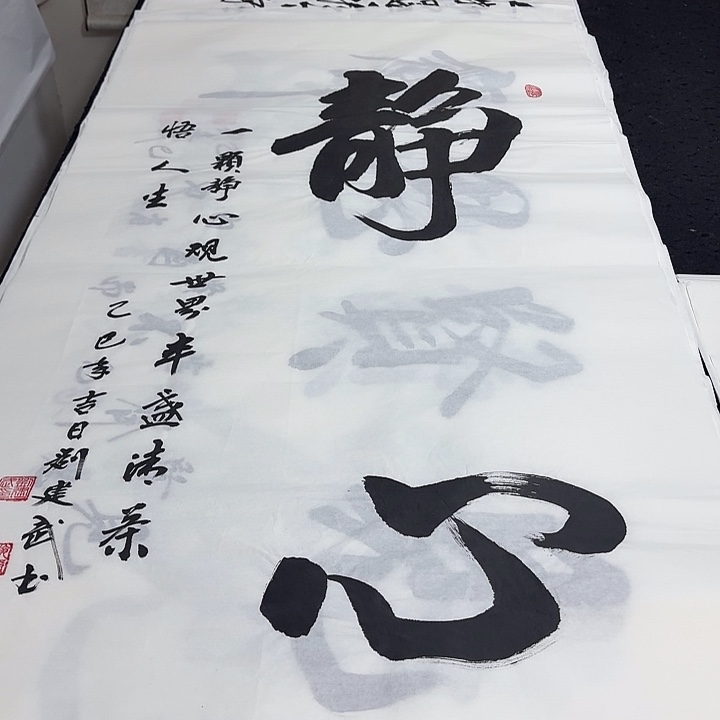 静心
一颗静心观世界半盏清茶
悟人生
乙巳年吉日劉建武书